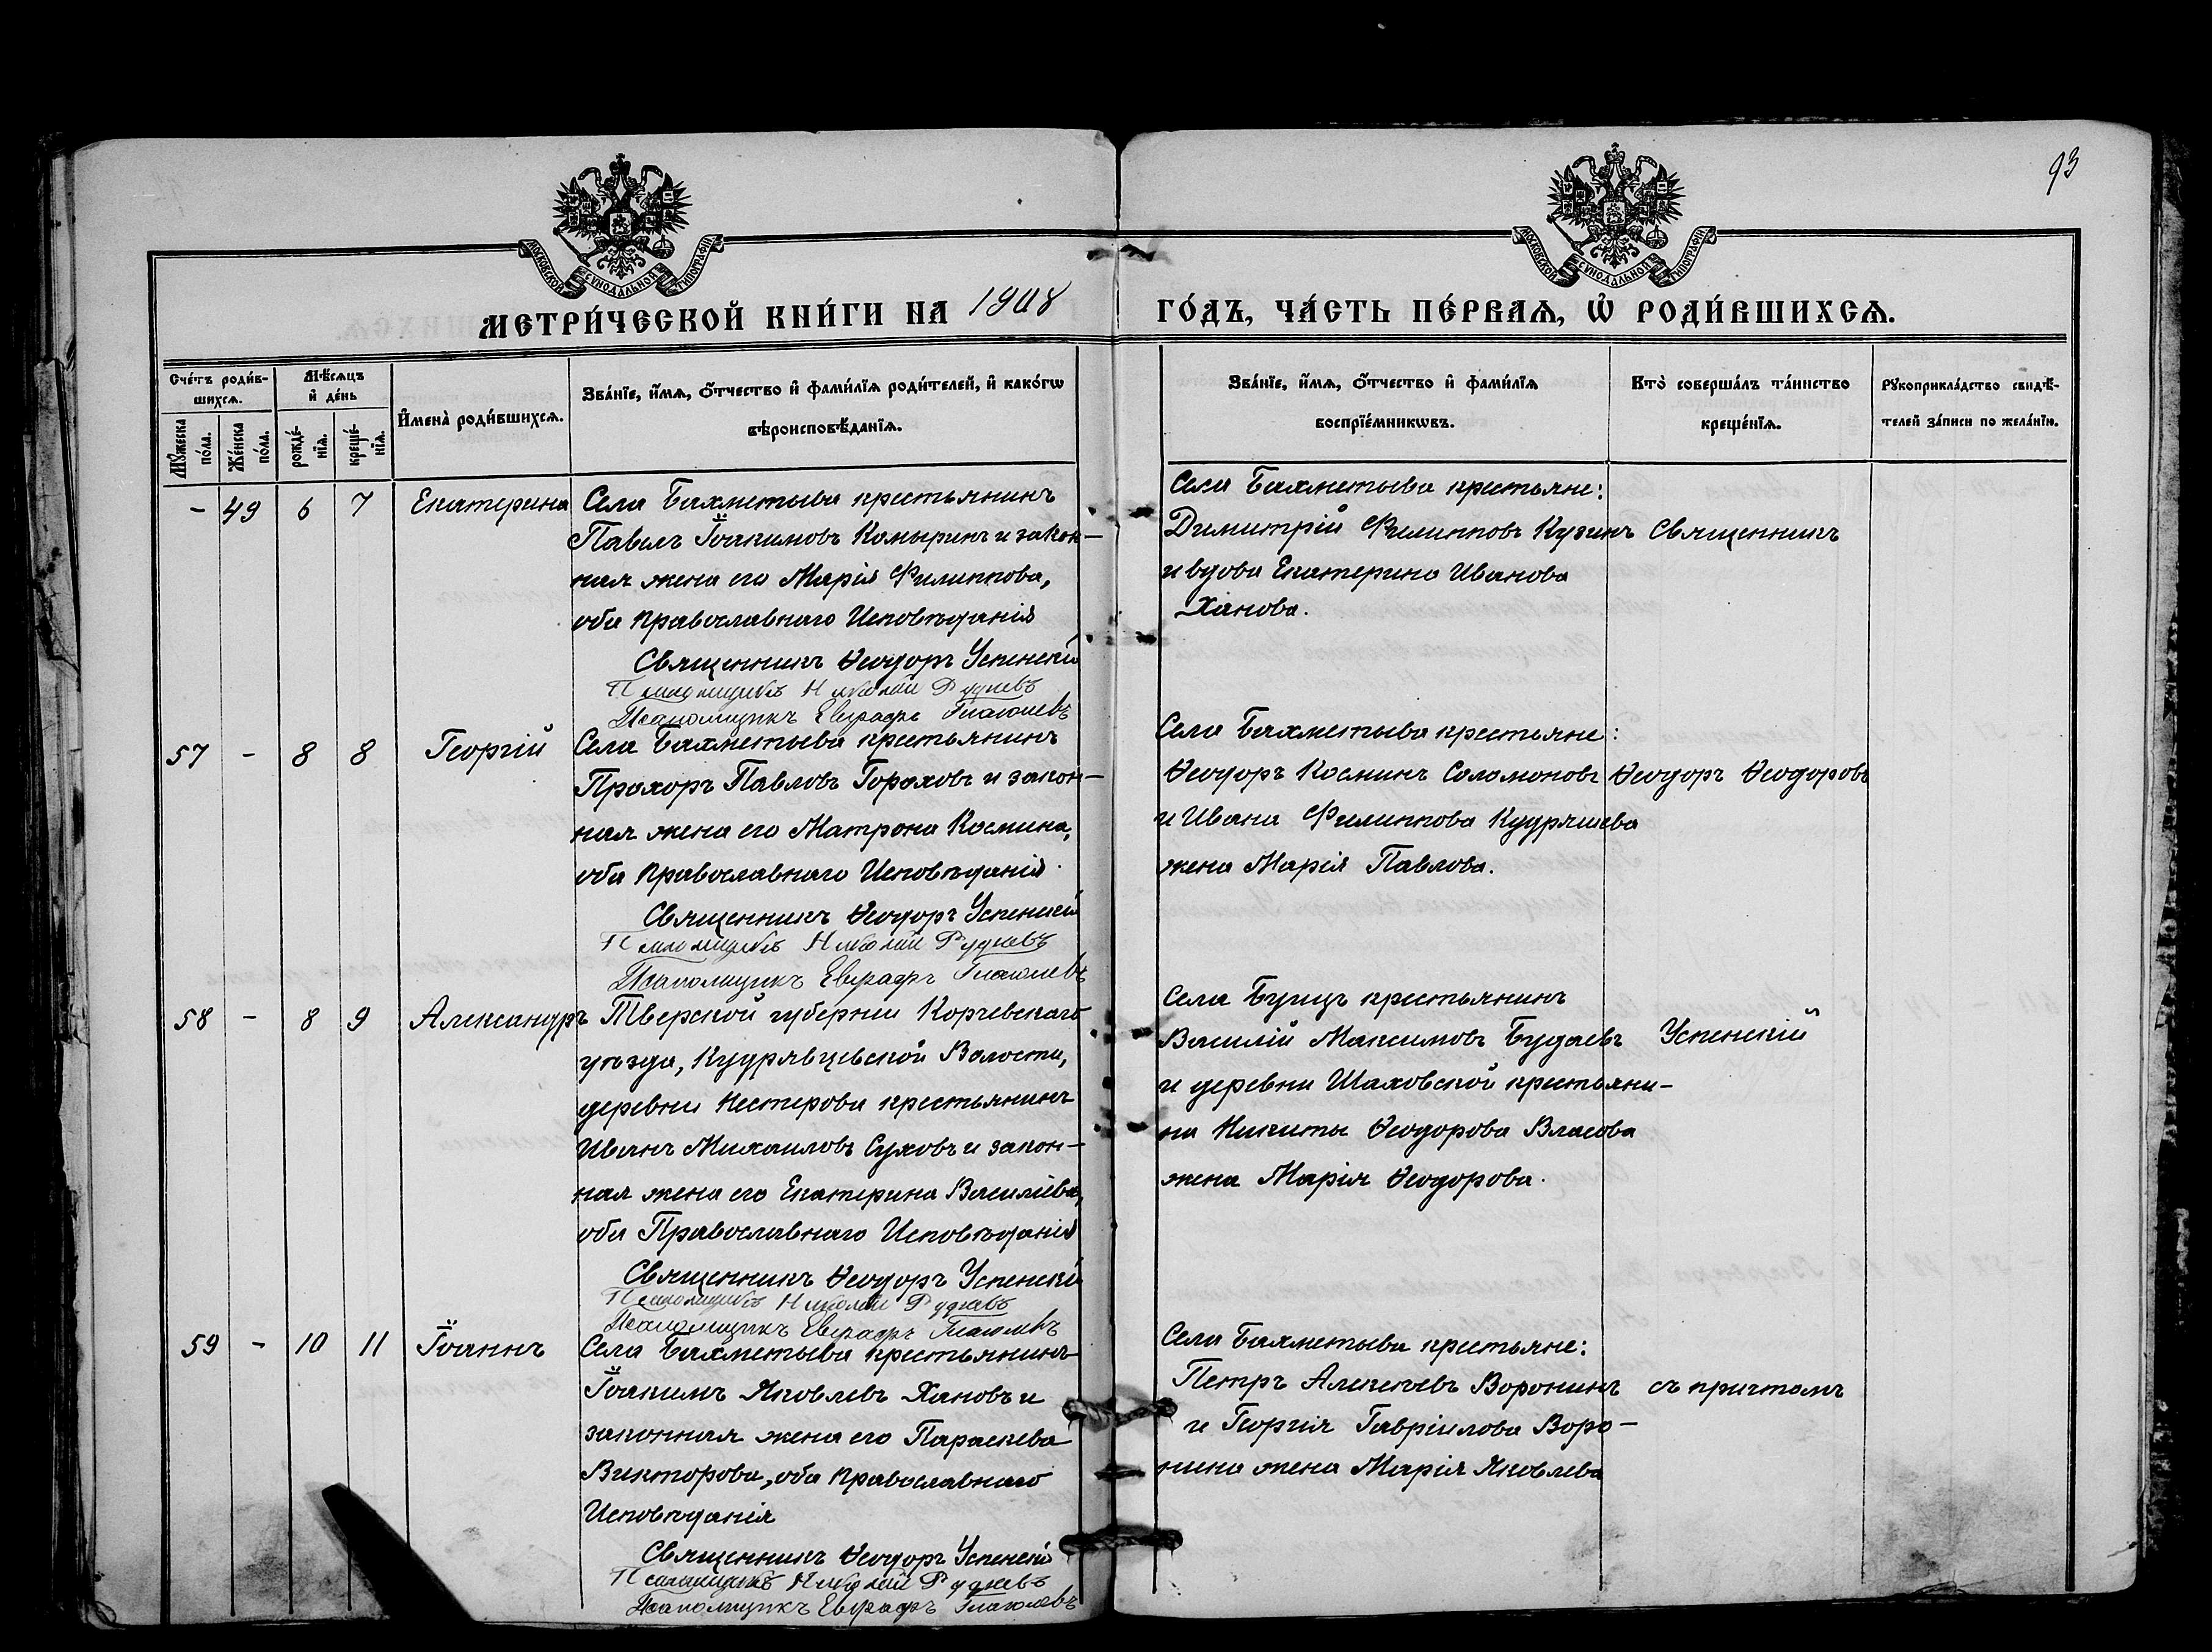 93
МОСКОВСКОЙ СУНОДАЛЬНОЙ ТИПОГРАФІИ
МОСКОВСКОЙ СУНОДАЛЬНОЙ ТИПОГРАФІИ
МЕТРИ́ЧЕСКОЙ КНИ́ГИ НА 1908
ГО́ДЪ, ЧА́СТЬ ПЕ́РВАѦ, Ѡ РОДИ́ВШИХСѦ.
Сче́тъ роди́в-
шихсѧ.
Мꙋжеска
по́ла.
Же́нска
по́ла.
Мѣ́сѧцъ
и҆ де́нь
рожде́-
нїѧ.
креще́-
нїѧ.
И҆мена̀ роди́вшихсѧ.
Зва́нїе, и҆́мѧ, ѻ҆́тчество и҆ фами́лїѧ роди́телей, и҆ како́гѡ
вѣроисповѣ́данїѧ.
Зва́нїе, и҆́мѧ, ѻ҆́тчество и҆ фами́лїѧ
воспрїе́мникѡвъ.
Кто̀ соверша́лъ та́инство
креще́нїѧ.
Рꙋкоприкла́дство свидѣ́-
телей за́писи по жела́нїю.
- 49 6 7 Екатерина
Села Бахметьева крестьянинъ
Павелъ Іоакимовъ Комыринъ и закон-
ная жена его Марія Филиппова,
оба Православнаго Исповѣданія
Священникъ Ѳеодоръ Успенскій
Псаломщикъ Николай Рудневъ
Псаломщикъ Евграфъ
Села Бахметьева крестьяне:
Димитрій Филипповъ Кузинъ
и вдова Екатерина Иванова
Ханова.
Священникъ
57 - 8 8 Георгій
Села Бахметьева крестьянинъ
Прохоръ Павловъ Гороховъ и закон-
ная жена его Матрона Космина,
оба Православнаго Исповѣданія.
Священникъ Ѳеодоръ Успенскій
Псаломщикъ Николай Рудневъ
Псаломщикъ Евграфъ
Села Бахметьева крестьяне:
Ѳеодоръ Косминъ Соломоновъ
и Ивана Филиппова Кудряшева
жена Марія Павлова.
Ѳеодоръ Ѳеодоровъ
58 - 8 9 Александръ
Тверской губерніи Корчевскаго
уѣзда, Кудрявцевской Волости,
деревни Нестерова крестьянинъ
Иванъ Михаиловъ Суховъ и закон-
ная жена его Екатерина Василіева,
оба Православнаго Исповѣданія
Священникъ Ѳеодоръ Успенскій
Псаломщикъ Николай Рудневъ
Псаломщикъ Евграфъ
Села Бужцъ крестьянинъ
Василій Максимовъ Будаевъ
и деревни Шаховской крестьяни-
на Никиты Ѳеодорова Власова
жена Марія Ѳеодорова.
Успенскій
59 - 10 11 Іоаннъ
Села Бахметьева крестьянинъ
Іоакимъ Яковлевъ Хановъ и
законная жена его Параскева
Викторова, оба Православнаго
Исповѣданія
Священникъ Ѳеодоръ Успенскій
Псаломщикъ Николай Рудневъ
Псаломщикъ Евграфъ
Села Бахметьева крестьяне:
Петръ Алексѣевъ Воронинъ
и Георгія Гавріилова Воро-
нина жена Марія Яковлева
съ причтомъ